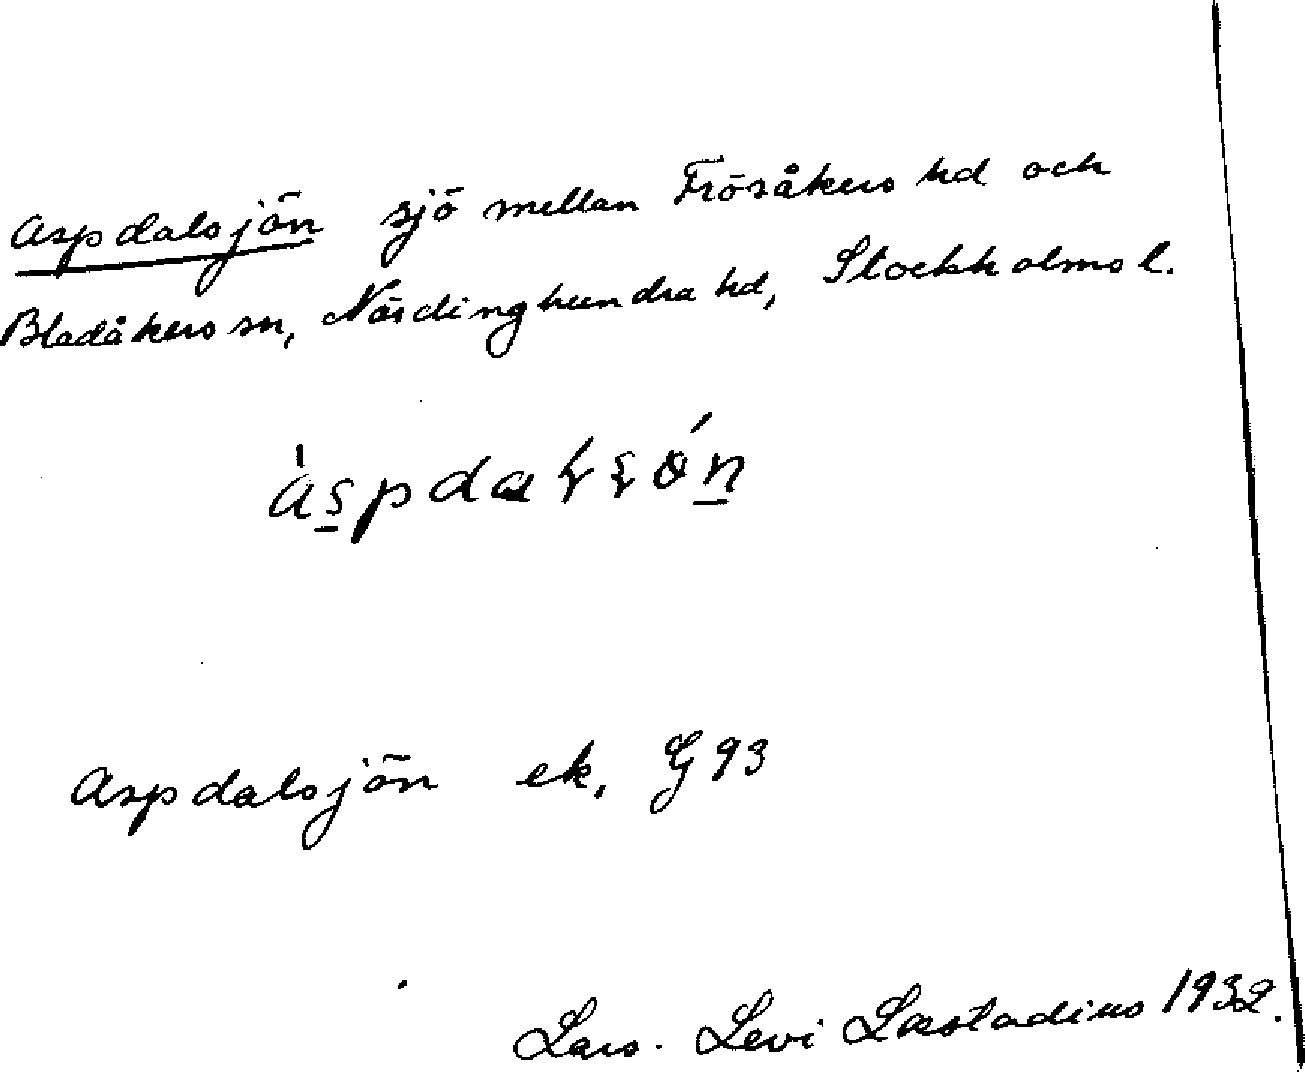 Aspdalsjön sjö mellan Frösåkers hd och
Bladåkers sn, Närdinghundra hd, Stockholms l.
Aspdalsjön ek, G 93
Lars. Levi Læstadius 1932.